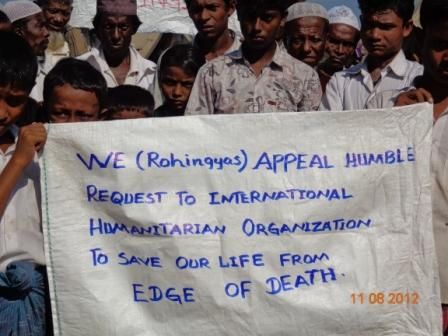 WE (Rohingyas) APPEAL HUMBLE
REQUEST TO INTERNATIONAL
HUMANITARIAN ORGANIZATION
TO SAVE OUR LIFE FROM
EDGE OF DEATH.
11 08 2012